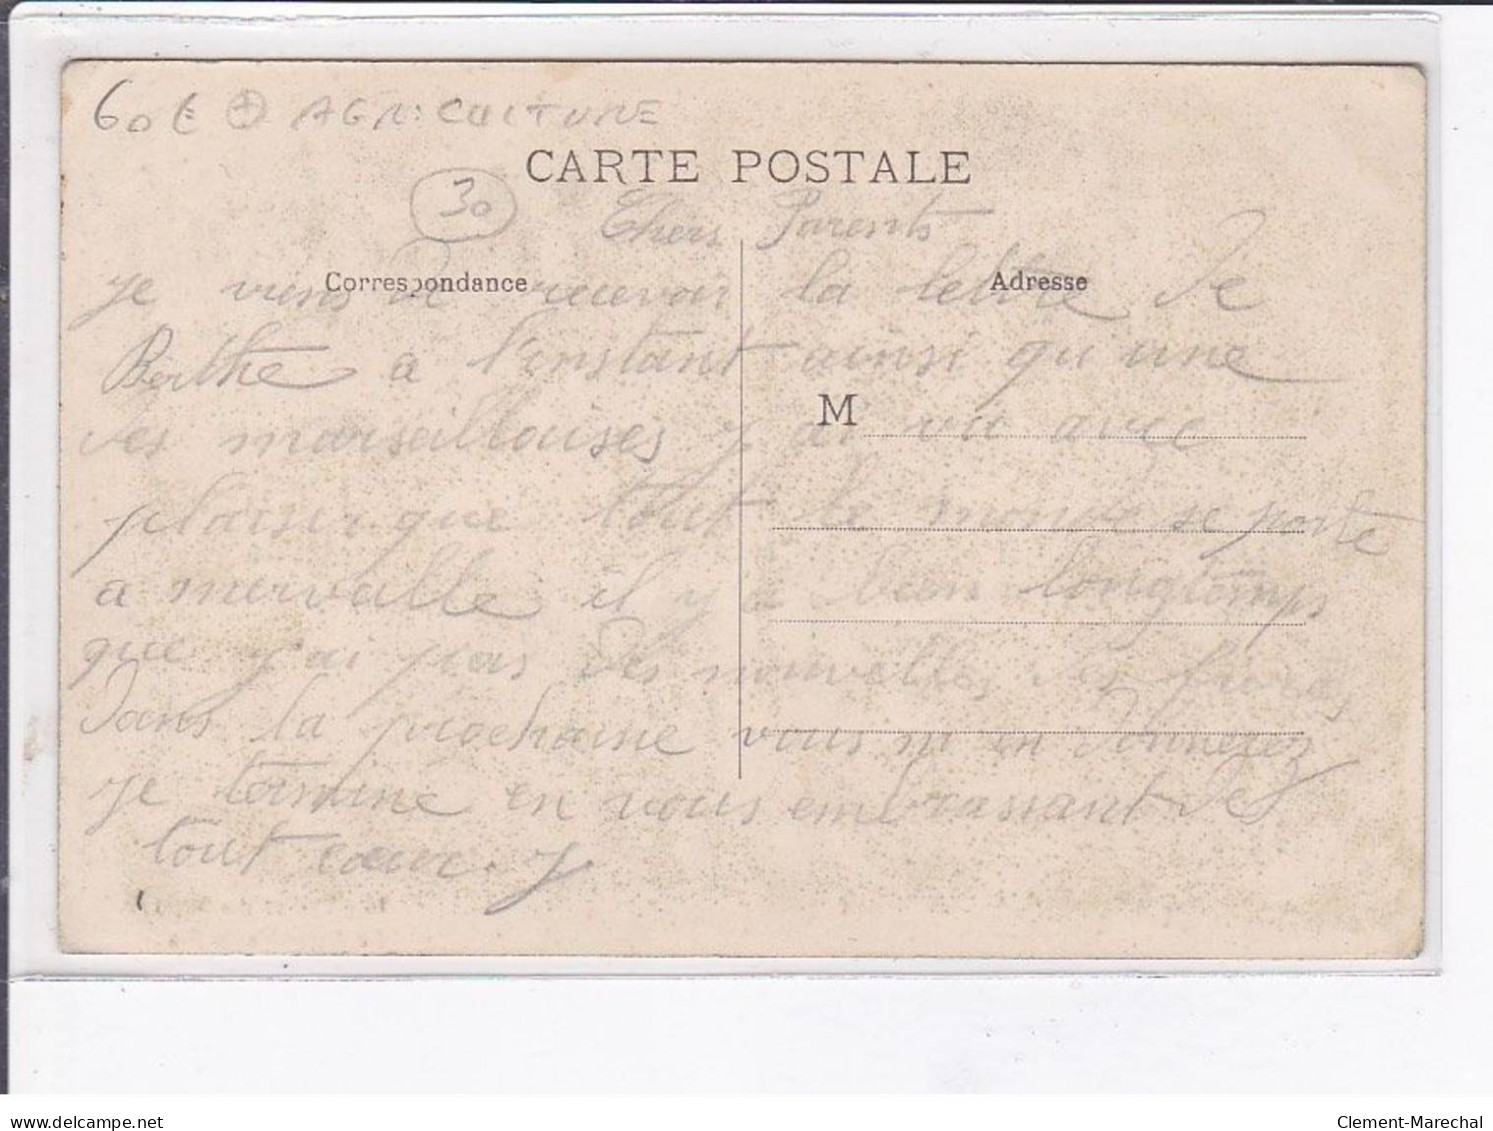 60€ + AGRICULTURE
CARTE POSTALE
30
Chers Parents
Correspondance
Adresse
je viens de recevoir la lettre de
Berthe a l'instant ainsi qu'une
des marseillaises j'ai vu avec
M
plaisir que tout le monde se porte
a mervelle il y a bien longtemps
que j'ai pas des nouvelles des frères
dans la prochaine vous m'en donnerez
je termine en vous embrassant de
tout cœur. J
delcampe.net
Clement-Marechal